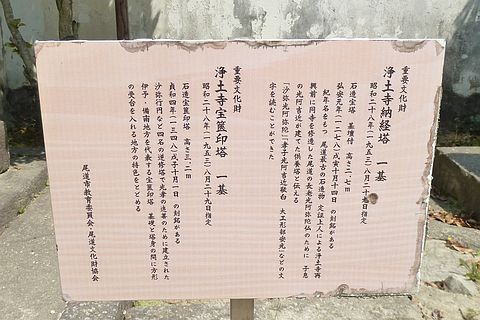 重要文化財
浄土寺納経塔 一基
昭和二十八年(一九五三)八月二十九日指定
石造宝塔 基壇付 高さ二、七m
弘安元年(一二七八)戊寅十月十四日 の刻銘がある
紀年名をもつ 尾道最古の石造物 定証上人による浄土寺再
興前に同寺を修造した尾道の長老光阿弥陀仏のために 子息
の光阿吉近が建てた供養塔と伝える
「沙弥光阿弥陀」「孝子光阿吉近敬白 大工形部安光」などの文
字を読むことができた
重要文化財
浄土寺宝篋印塔 一基
昭和二十八年(一九五三)八月二十九日指定
石造宝篋印塔 高さ三、二m
貞和四年(一三四八)戊子十月一日 の刻銘がある
沙弥行円など四名の逆修塔で光孝の追善のために建立された
伊予・備南地方を代表する宝篋印塔 基礎と塔身の間に方形
の受台を入れる地方の特色をとどめる
尾道市教育委員会・尾道文化財協会